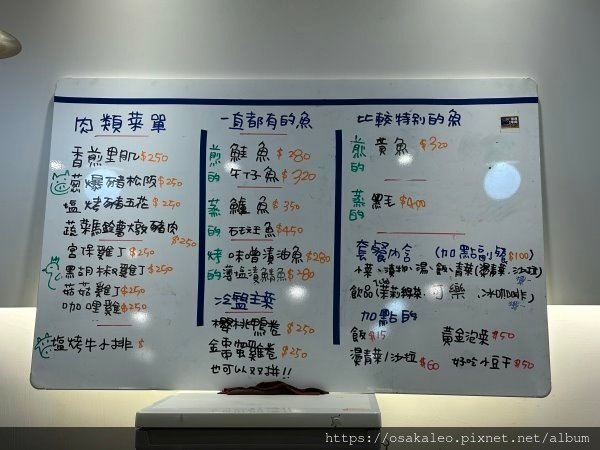 肉類菜單
香煎里肌 $250
蔥爆豬松阪 $250
塩烤豬五花 $250
蔬菜燉豬肉 $250
宮保雞丁 $250
黑胡椒雞丁 $250
菇菇雞 $250
咖哩雞 $250
塩烤牛小排 $
一直都有的魚
煎的
鮭魚 $280
午仔魚 $320
蒸的
鱸魚 $350
石斑魚 $450
烤的
味噌漬油魚 $280
薄塩漬鯖魚 $280
冷盤主菜
櫻桃鴨卷 $250
金雞卷 $250
也可以双拼!!
比較特別的魚
煎的
黃魚 $320
蒸的
黑毛 $400
套餐內含 (加點副餐 $100)
小菜、漬物、湯、飯、青菜(燙青菜、沙拉)
飲品(茉莉綠茶、可樂、冰咖啡)
加點的
飯 $15
黃金泡菜 $50
燙青菜/沙拉 $60
好吃小豆干 $50
https://osakaleo.pixnet.net/album